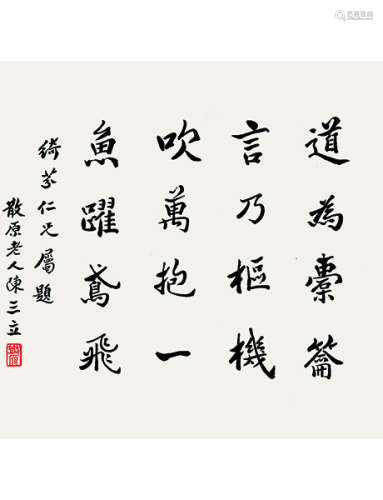 道為橐籥
言乃樞機
吹萬抱一
魚躍鳶飛
綺芬仁兄屬題
散原老人陳三立